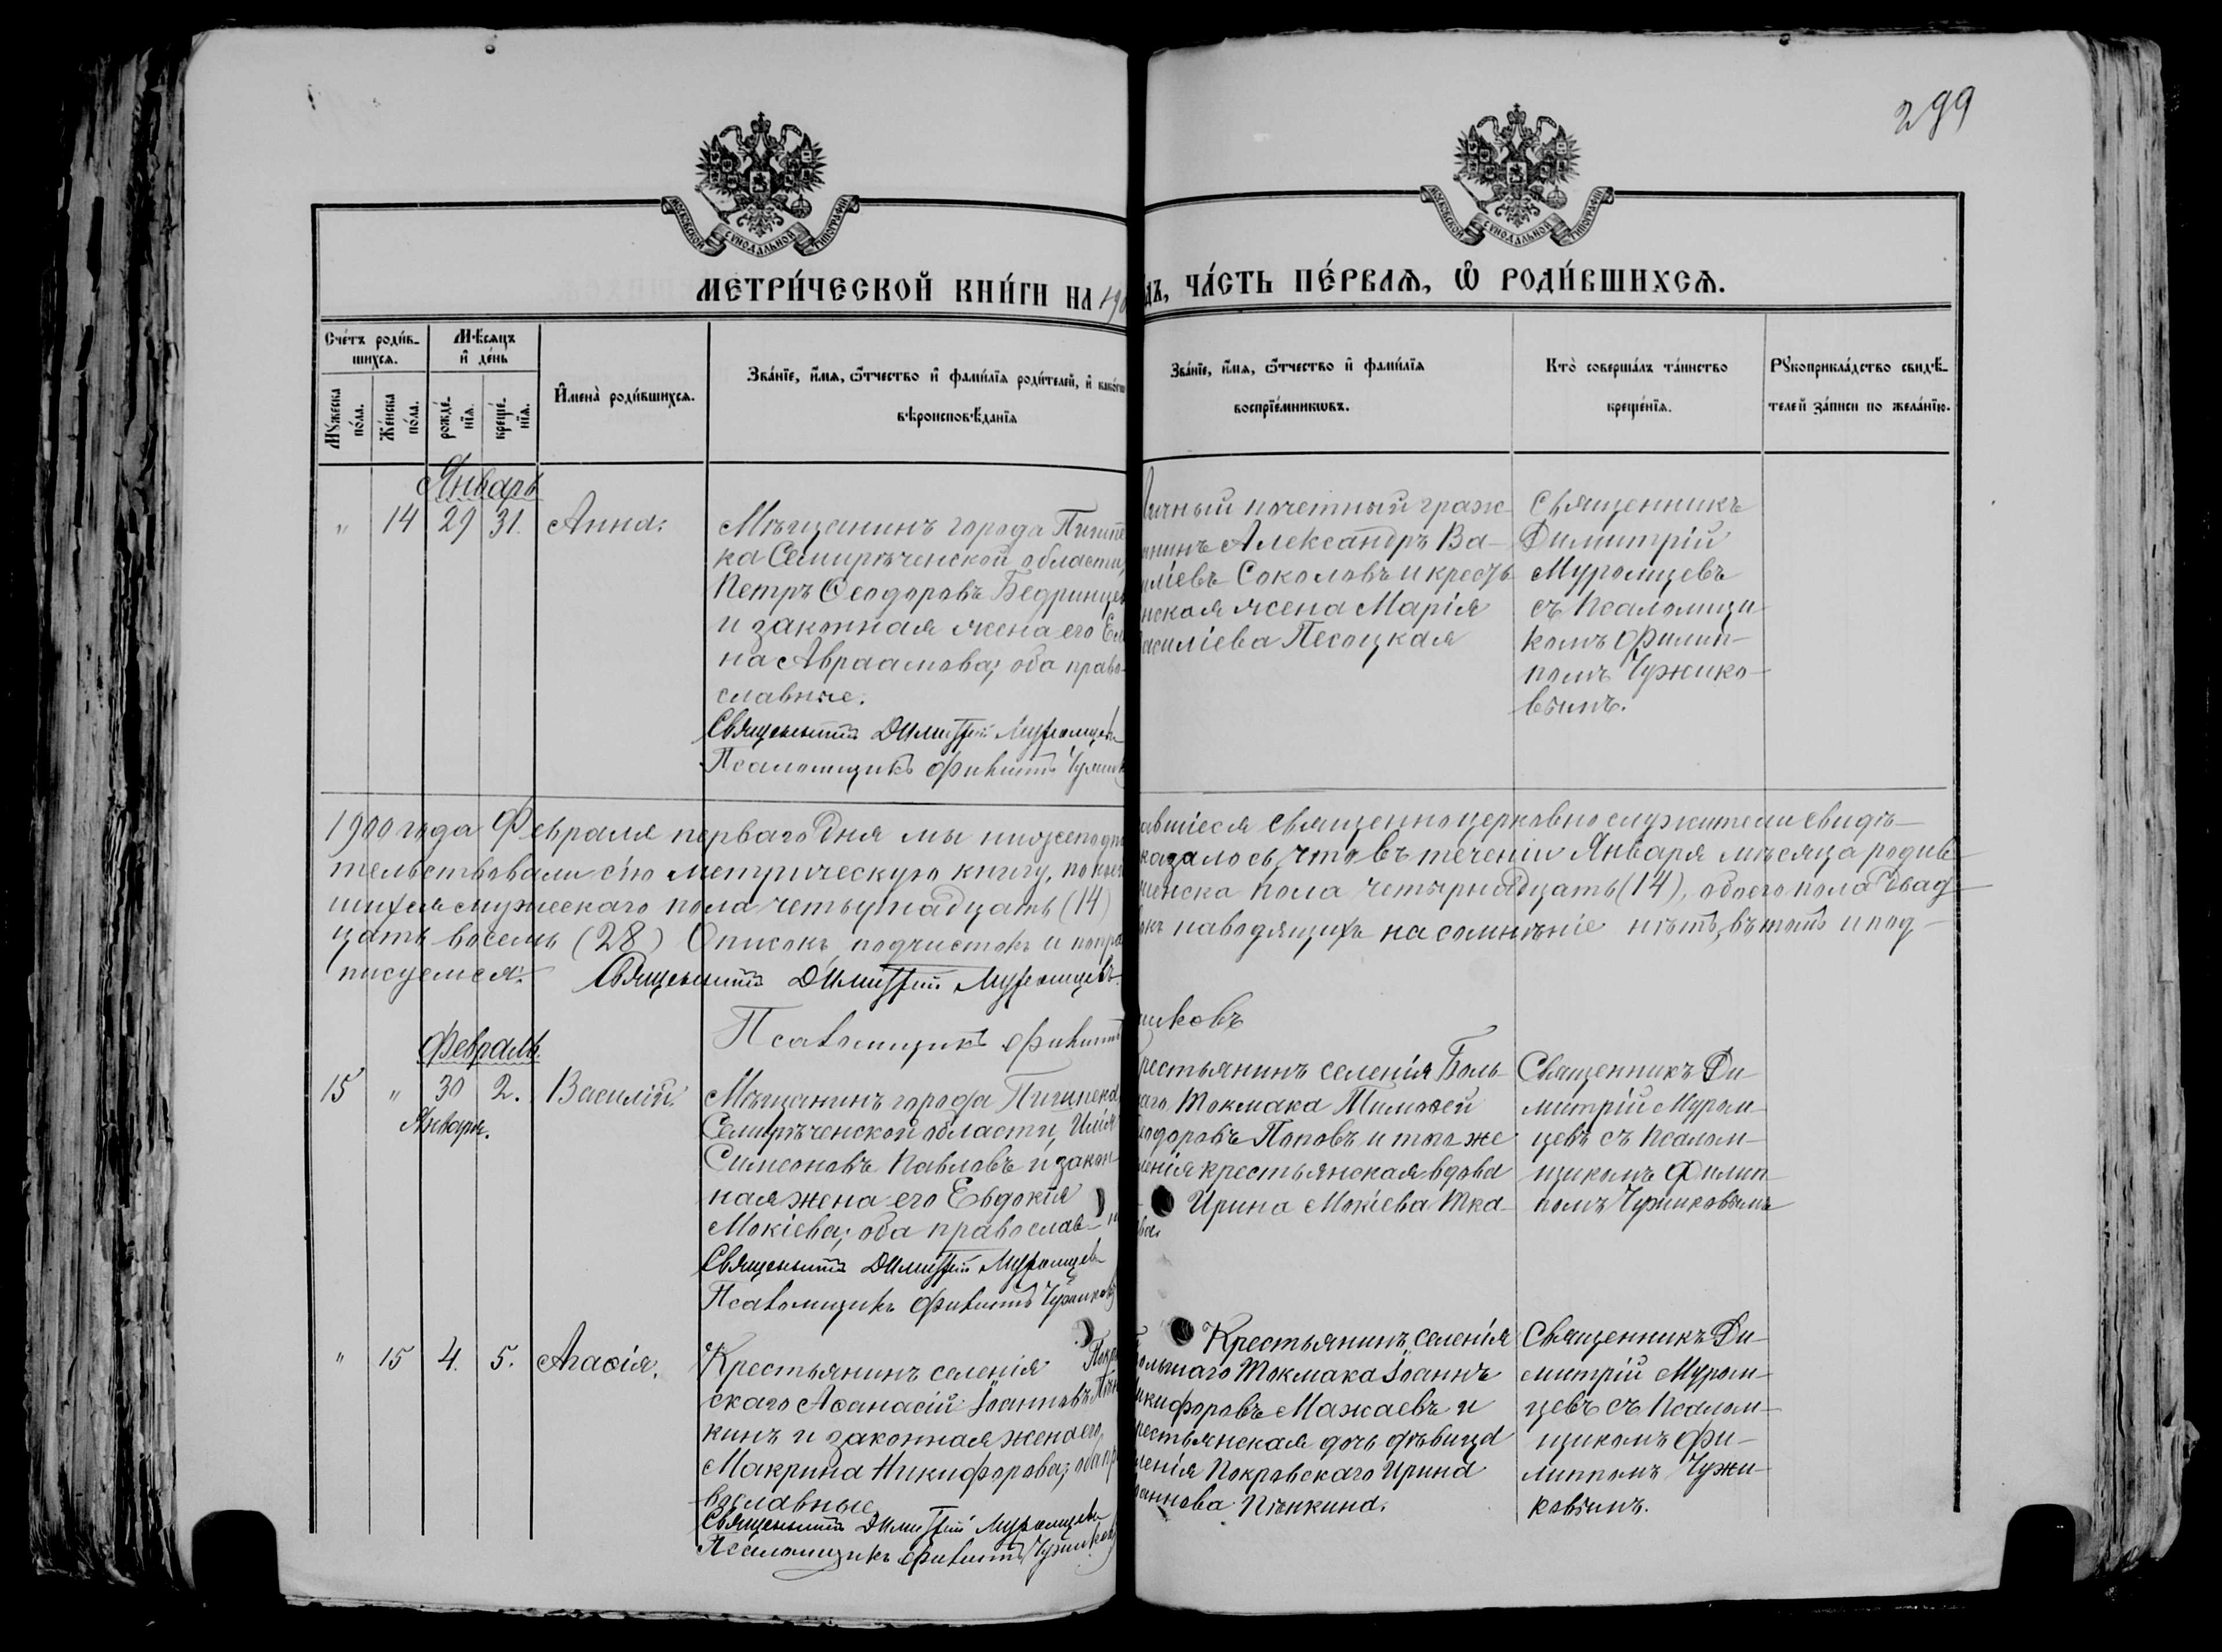 299
МОСКОВСКОЙ СУНОДАЛЬНОЙ ТИПОГРАФІИ
МОСКОВСКОЙ СУНОДАЛЬНОЙ ТИПОГРАФІИ
МЕТРИ́ЧЕСКОЙ КНИ́ГИ НА 190
дъ, ЧА́СТЬ ПЕ́РВАѦ, Ѡ҆ РОДИ́ВШИХСѦ.
Сче́тъ роди́в-
шихсѧ.
Мѣ́сѧцъ
и҆ де́нь
Мꙋ́жеска по́ла.
Же́нска по́ла.
рожде́-
нїѧ.
креще́-
нїѧ.
И҆мена̀ роди́вшихсѧ.
Зва́нїе, и҆́мѧ, ѻ҆́тчество и҆ фами́лїѧ роди́телей, и҆ како́гѡ
вѣроисповѣ́данїѧ
Зва́нїе, и҆́мѧ, ѻ҆́тчество и҆ фами́лїѧ
воспрїе́мникѡвъ.
Кто̀ соверша́лъ та́инство
креще́нїѧ.
Рꙋкоприкла́дство свидѣ́-
телей за́писи по жела́нїю.
Январь
" 14 29 31. Анна.
Мѣщанинъ города Пишпе
ка Семирѣченской области,
Петръ Ѳеодоровъ Бедринцев
и законная жена его Еле
на Авраамова; оба право-
славные.
Священникъ Димитрій Муромцевъ
Псаломщикъ Филиппъ Чужик
Личный почетный граж-
нинъ Александръ Ва-
иліевъ Соколовъ и кресть
нская жена Марія
асиліева Песоцкая
Священникъ
Димитрій
Муромцевъ
съ Псаломщи-
комъ Филип-
помъ Чужико-
вымъ.
1900 года Февраля перваго дня мы нижеподп
авшіеся священноцерковнослужители свидѣ-
тельствовали сію метрическую книгу, по кое
казалось, что въ теченіи Января мѣсяца родив-
шихся мужескаго пола четырнадцать (14)
женска пола четырнадцать (14), обоего пола двад-
цать восемь (28) Описокъ, подчистокъ и попра
окъ наводящихъ на сомнѣніе нѣтъ, въ томъ и под-
писуемся:
Священникъ Димитрій Муромцевъ.
Псаломщикъ Филиппъ
иковъ
Февраль.
15 " 30 2. Василій.
Января.
Мѣщанинъ города Пишпека
Семирѣченской области, Илія
Симеоновъ Павловъ и закон-
ная жена его Евдокія
Мокіева; оба православ-
Священникъ Димитрій Муромцевъ
Псаломщикъ Филиппъ Чужиковъ
рестьянинъ селенія Боль-
аго Токмака Тимоѳей
еодоровъ Поповъ и того же
ленія крестьянская вдова
Ирина Мокіева Тка-
ва.
Священникъ Ди-
митрій Муром-
цевъ съ Псалом-
щикомъ Филип-
помъ Чужиковымъ
" 15 4. 5. Агаѳія.
Крестьянинъ селенія Покров
скаго Аѳанасій Іоанновъ Пѣн
кинъ и законная жена его
Макрина Никифорова; оба пр
вославные
Священникъ Димитрій Муромцевъ
Псаломщикъ Филиппъ Чужиковъ
Крестьянинъ селенія
ольшаго Токмака Іоаннъ
икифоровъ Мажаевъ и
рестьянская дочь дѣвица
ленія Покровскаго Ирина
оаннова Пѣнкина.
Священникъ Ди-
митрій Муром-
цевъ съ Псалом-
щикомъ Фи-
липпомъ Чужи-
ковымъ.